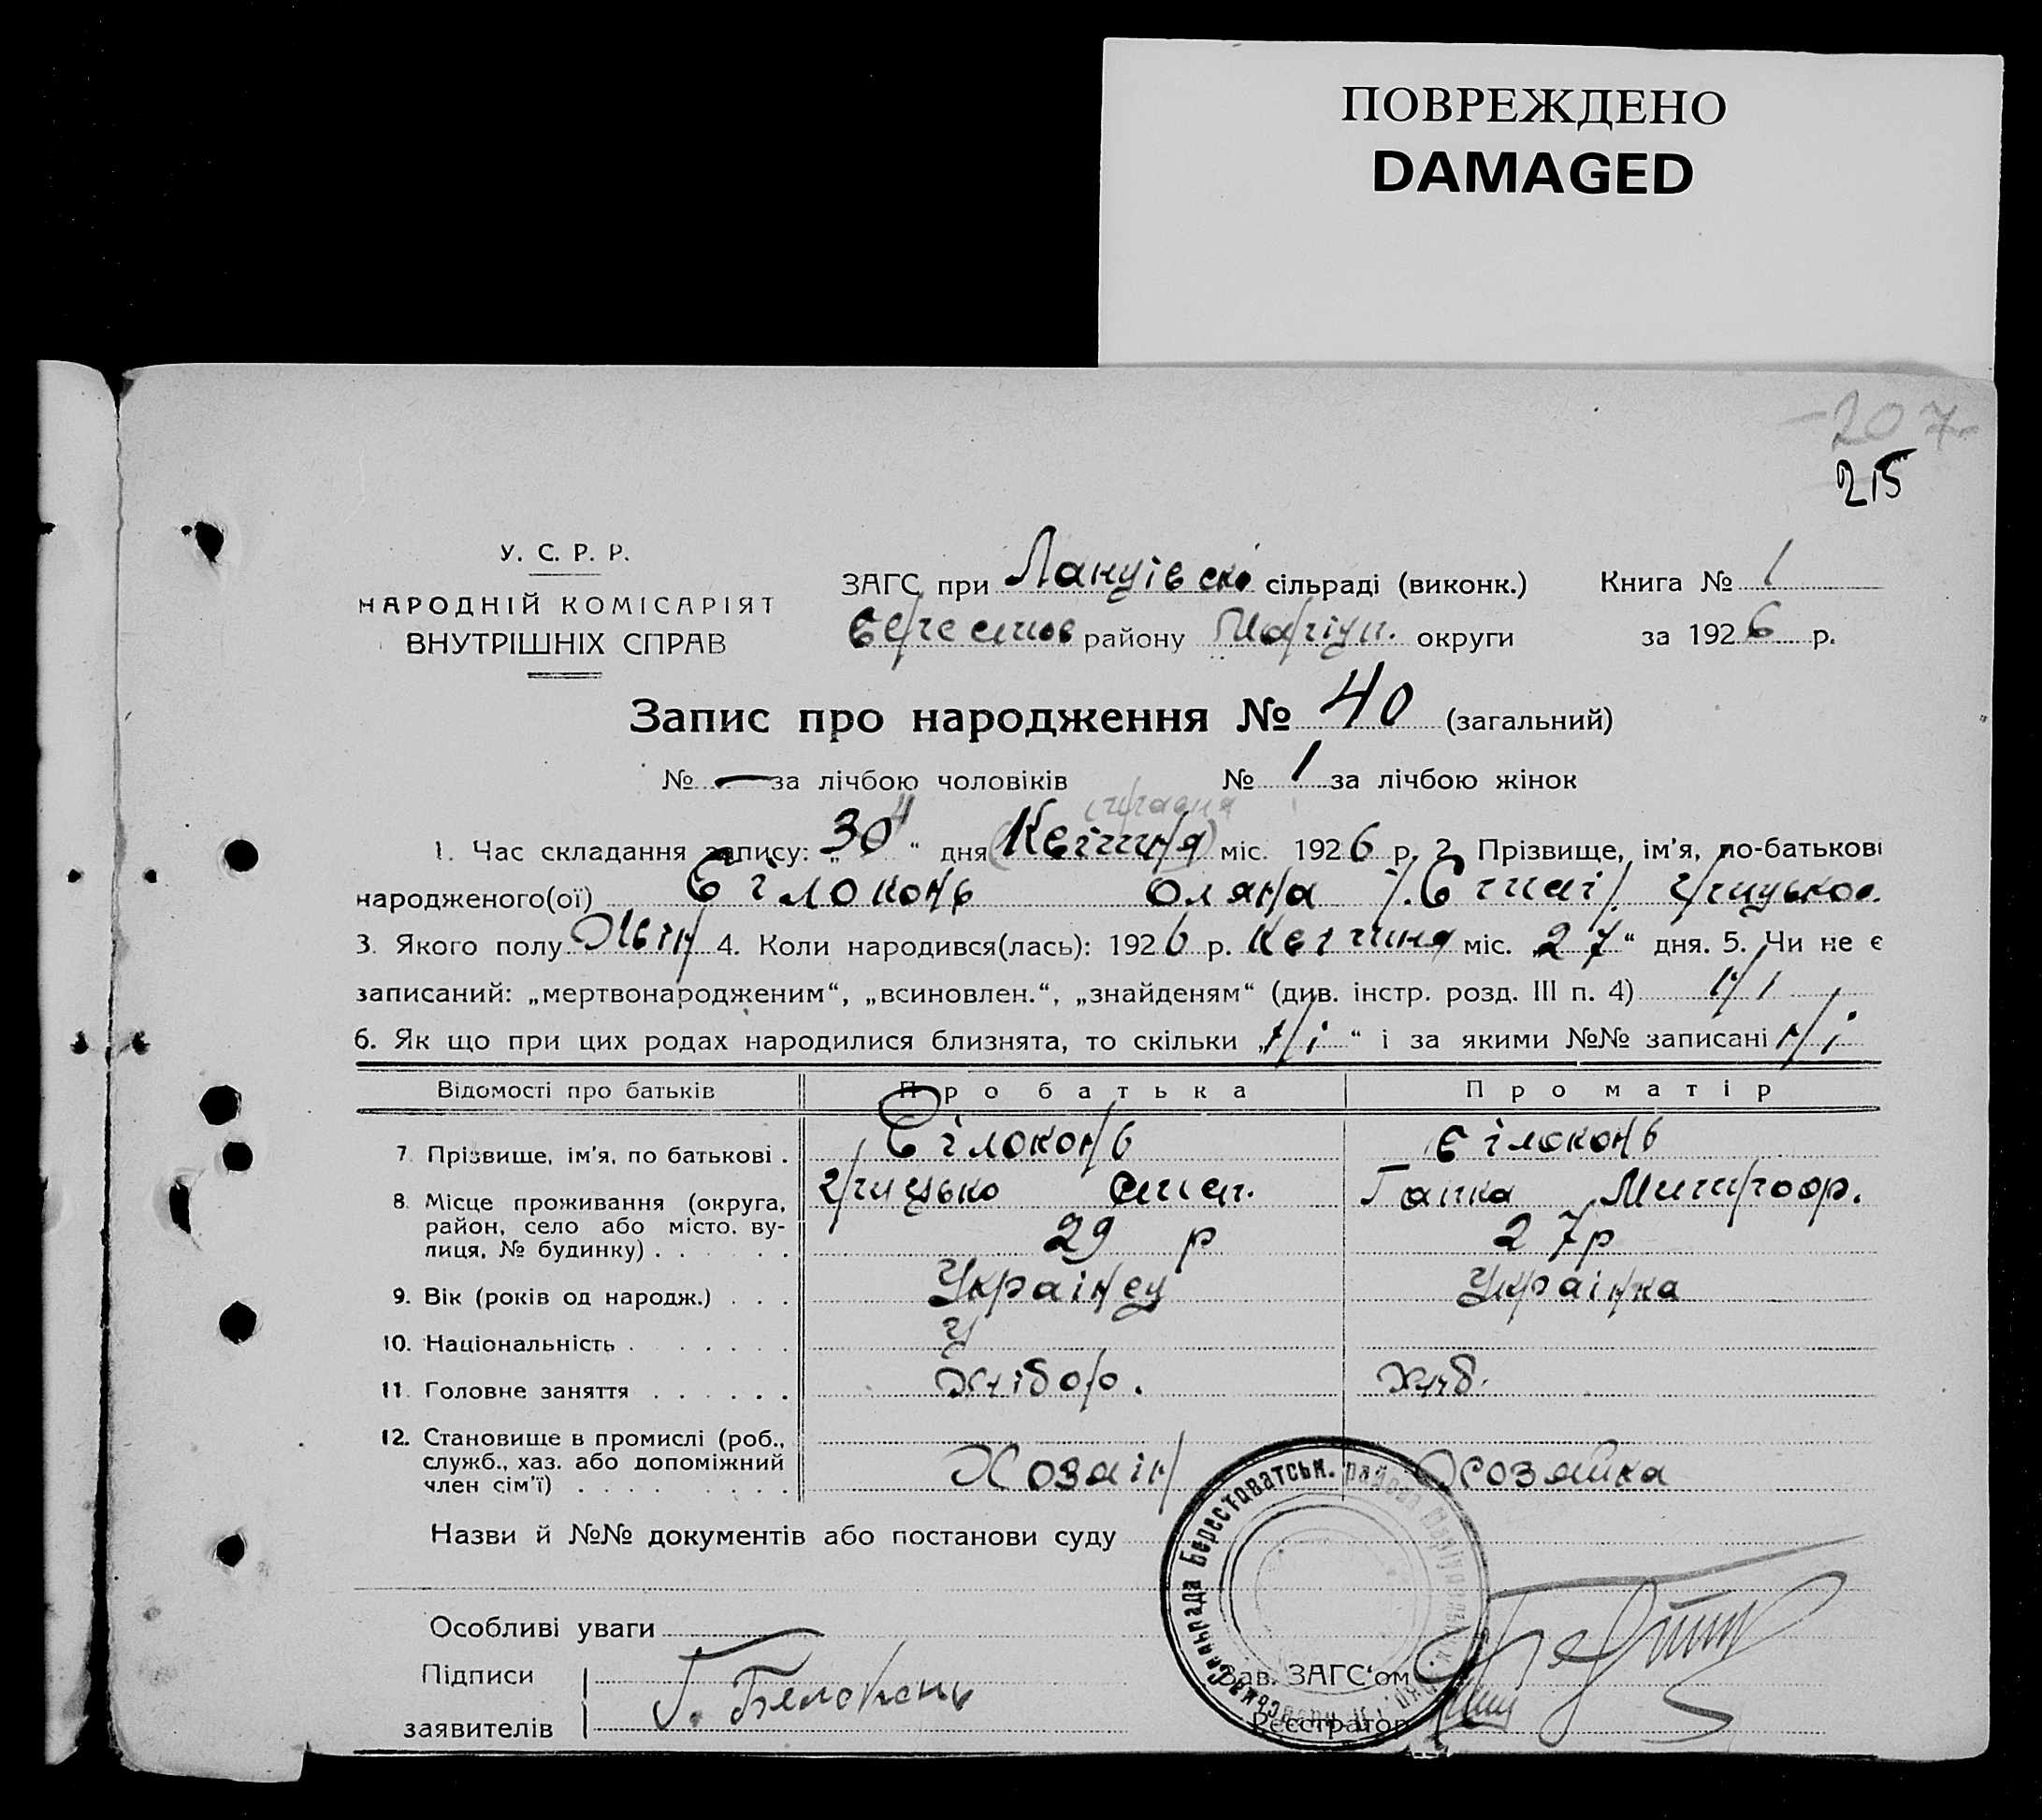 ПОВРЕЖДЕНО
DAMAGED
207
215
У. С. Р. Р.
НАРОДНІЙ КОМІСАРІЯТ
ВНУТРІШНІХ СПРАВ
ЗАГС при Ланцівскі сільраді (виконк.) Книга № 1
району Маріуп. округи за 1926 р.
Запис про народження № 40 (загальний)
№ — за лічбою чоловіків № 1 за лічбою жінок
(травня
1. Час складання запису: „30“ дня Квітня) міс. 1926 р. 2. Прізвище, ім'я, по-батькові
народженого(ої) Білоконь Оляна Грицьков.
3. Якого полу Жін 4. Коли народився(лась): 1926 р. Квітня міс. 27“ дня. 5. Чи не є
записаний: „мертвонародженим“, „всиновлен.“, „знайденям“ (див. інстр. розд. III п. 4) Ні
6. Як що при цих родах народилися близнята, то скільки „Ні“ і за якими №№ записані Ні
Відомості про батьків Про батька Про матір
7. Прізвище, ім'я, по батькові . Білоконь Білоконь
8. Місце проживання (округа, Грицько Гапка Митроф.
район, село або місто, ву-
лиця, № будинку) . . . . . . 29 р 27р
9. Вік (років од народж.) . . . Українец Українка
10. Національність . . . . . . . У
11. Головне заняття . . . . . . Хлібор. Хліб.
12. Становище в промислі (роб.,
служб., хаз. або допоміжний Хозаін Хозяйка
член сім'ї) . . . . . . . . .
Назви й №№ документів або постанови суду
Особливі уваги
Підписи
Г. Белоконь
заявителів
Зав. ЗАГС'ом
Реєстратор
сільрада Берестоватськ. району Маріупільськ.